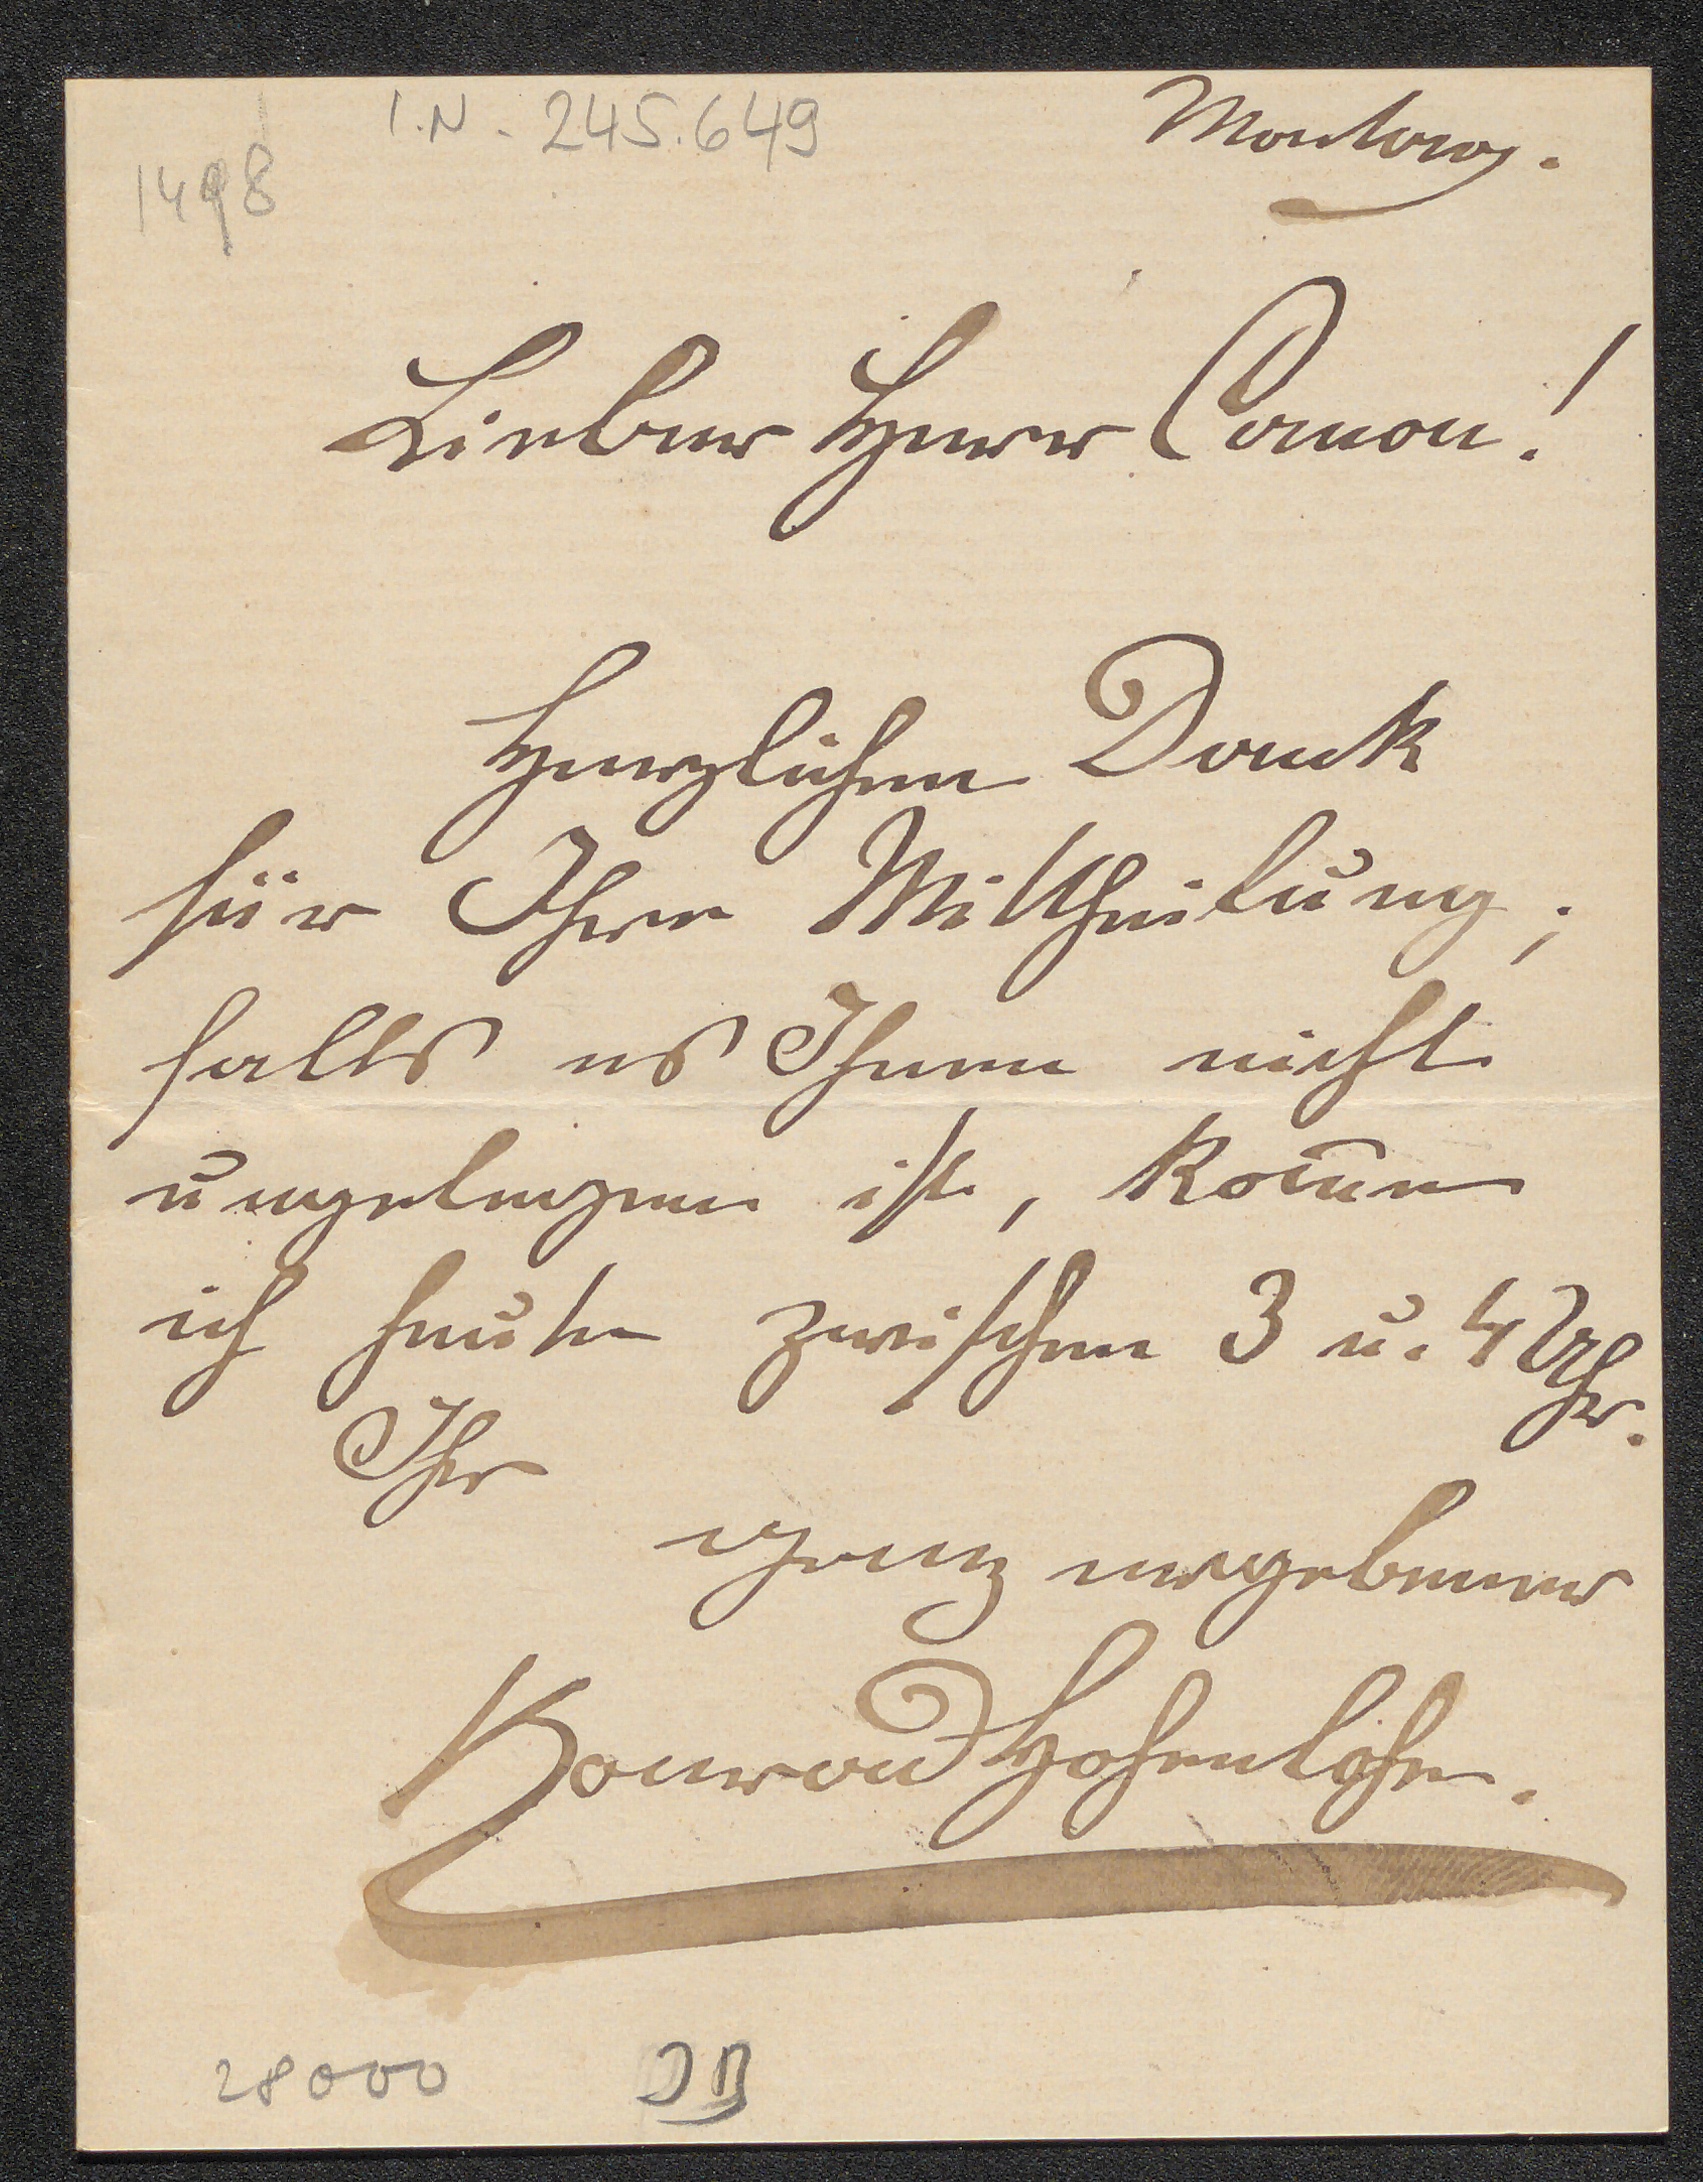 I.N. 245.649
1498
Montag.
Lieber Herr Canon!
Herzlichen Dank
für Ihre Mittheilung;
falls es Ihnen nicht
ungelegen ist, kom̄e
ich heute zwischen 3 u. 4 Uhr.
Ihr
ganz ergebener
Konrad Hohenlohe.
28000